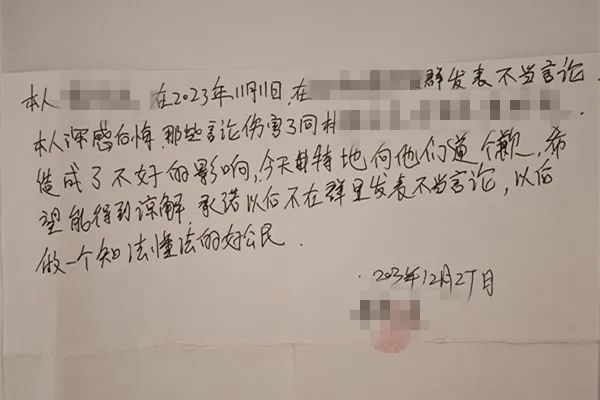 本人 在2023年11月11日,在 群发表不当言论
本人深感后悔,那些言论伤害了同村
造成了不好的影响,今天特地向他们道个歉,希
望能得到谅解,承诺以后不在群里发表不当言论,以后
做一个知法懂法的好公民.
2023年12月27日